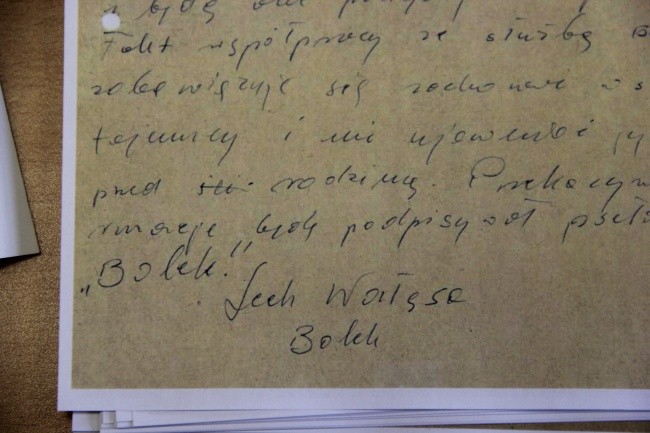 i będą
Fakt współpracy ze służbą B
zobowiązuję się zachować w s
tajemnicy i nie ujawniać
przed rodziną. Przekazyw
rmacje będę podpisywał pseud
„Bolek."
Lech Wałęsa
Bolek